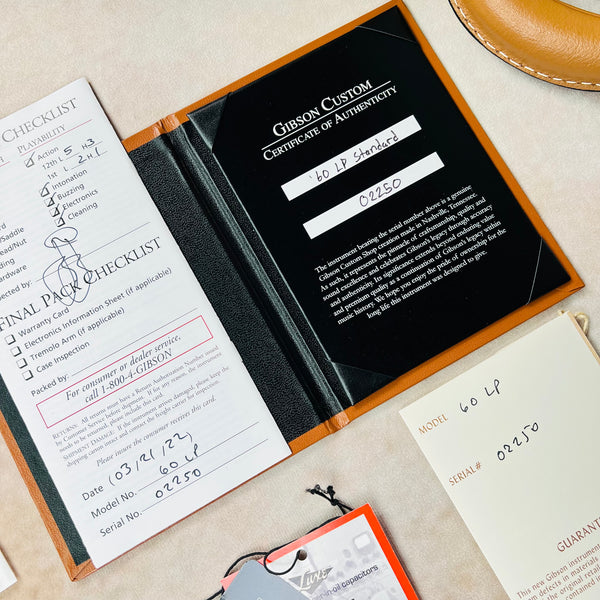 CHECKLIST
PLAYABILITY
Action
12th L 5 H3
1st L 2 H1
Intonation
Buzzing
Electronics
Cleaning
Saddle
ead/Nut
ding
ardware
ected by:
FINAL PACK CHECKLIST
Warranty Card
Electronics Information Sheet (if applicable)
Tremolo Arm (if applicable)
Case Inspection
Packed by:
For consumer or dealer service,
call 1-800-4-GIBSON
RETURNS: All returns must have a Return Authorization Number issued
by Customer Service before shipment. If for any reason, the instrument
needs to be returned, please include this card.
SHIPMENT DAMAGE: If the instrument arrives damaged, please keep the
shipping carton intact and contact the freight carrier for inspection.
Please insure the consumer receives this card.
Date (03/21/22)
Model No. 60 LP
Serial No. 02250
GIBSON CUSTOM
CERTIFICATE OF AUTHENTICITY
'60 LP Standard
02250
The instrument bearing the serial number above is a genuine
Gibson Custom Shop creation made in Nashville, Tennessee.
As such, it represents the pinnacle of craftsmanship, quality and
sound excellence and celebrates Gibson's legacy through accuracy
and authenticity. Its significance extends beyond enduring value
and premium quality as a continuation of Gibson's legacy within
music history. We hope you enjoy the pride of ownership for the
long life this instrument was designed to give.
MODEL 60 LP
SERIAL# 02250
GUARAN
This new Gibson instrument
from defects in materials
the original retail
contained in
Luxe
-in-oil capacitors